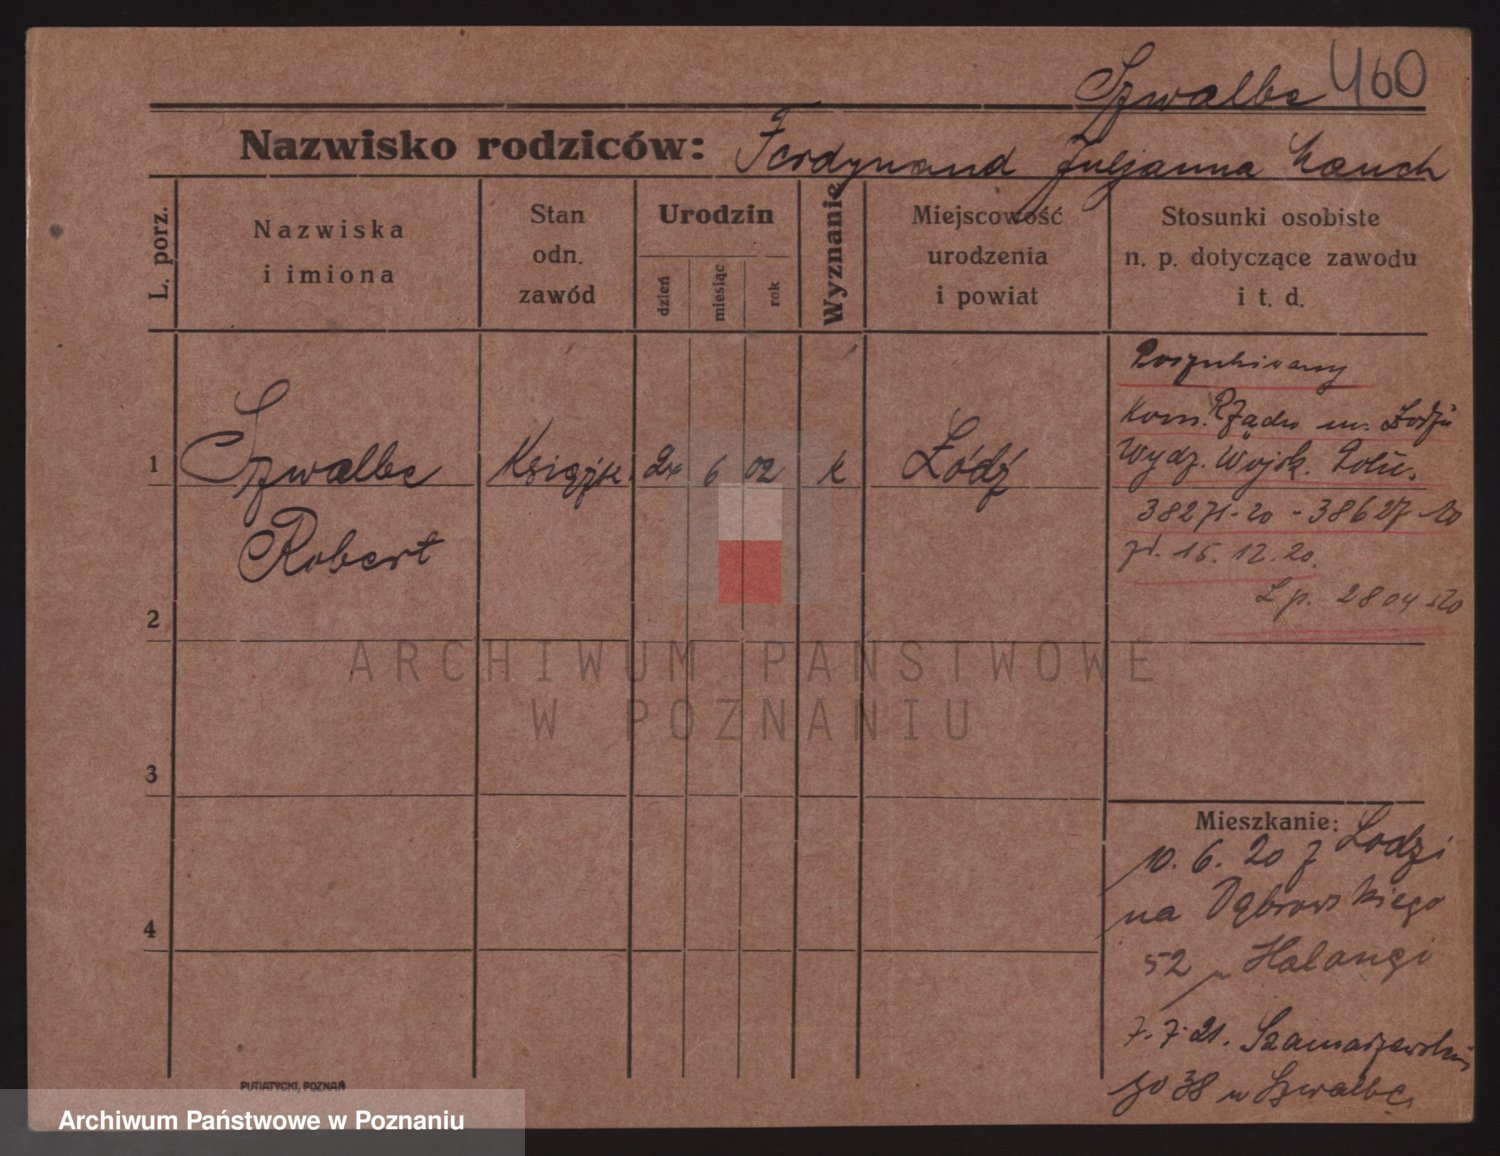 Szwalbe 460
Nazwisko rodziców: Ferdynand Juljanna Lauch
L. porz.
Nazwiska
i imiona
Stan
odn.
zawód
Urodzin
dzień
miesiąc
rok
Wyznanie
Miejscowość
urodzenia
i powiat
Stosunki osobiste
n. p. dotyczące zawodu
i t. d.
Poszukiwany
Kom. Rządu m. Łodzi
Wydz. Wojsk. Polic.
38271-20 - 38627-20
zd. 15.12.20.
L.p. 2804-20
1 Szwalbe Książk. 24 6 02 k Łódź
Robert
2
3
4
Mieszkanie:
10. 6. 20 z Łodzi
na Dąbrowskiego
52 u Halangi
7.7.21. Szamarzewski
go 38 u Szwalbe
PUTIATYCKI, POZNAŃ
ARCHIWUM PAŃSTWOWE
W POZNANIU
Archiwum Państwowe w Poznaniu